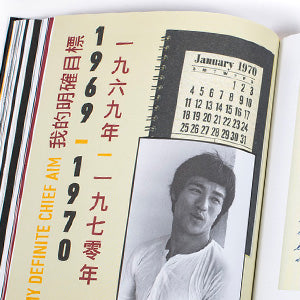 一九六九年 — 一九七零年
1969 - 1970
我的明確目標
MY DEFINITE CHIEF AIM
January 1970
S M T W T F S
1 2 3
4 5 6 7 8 9 10
11 12 13 14 15 16 17
18 19 20 21 22 23 24
25 26 27 28 29 30 31